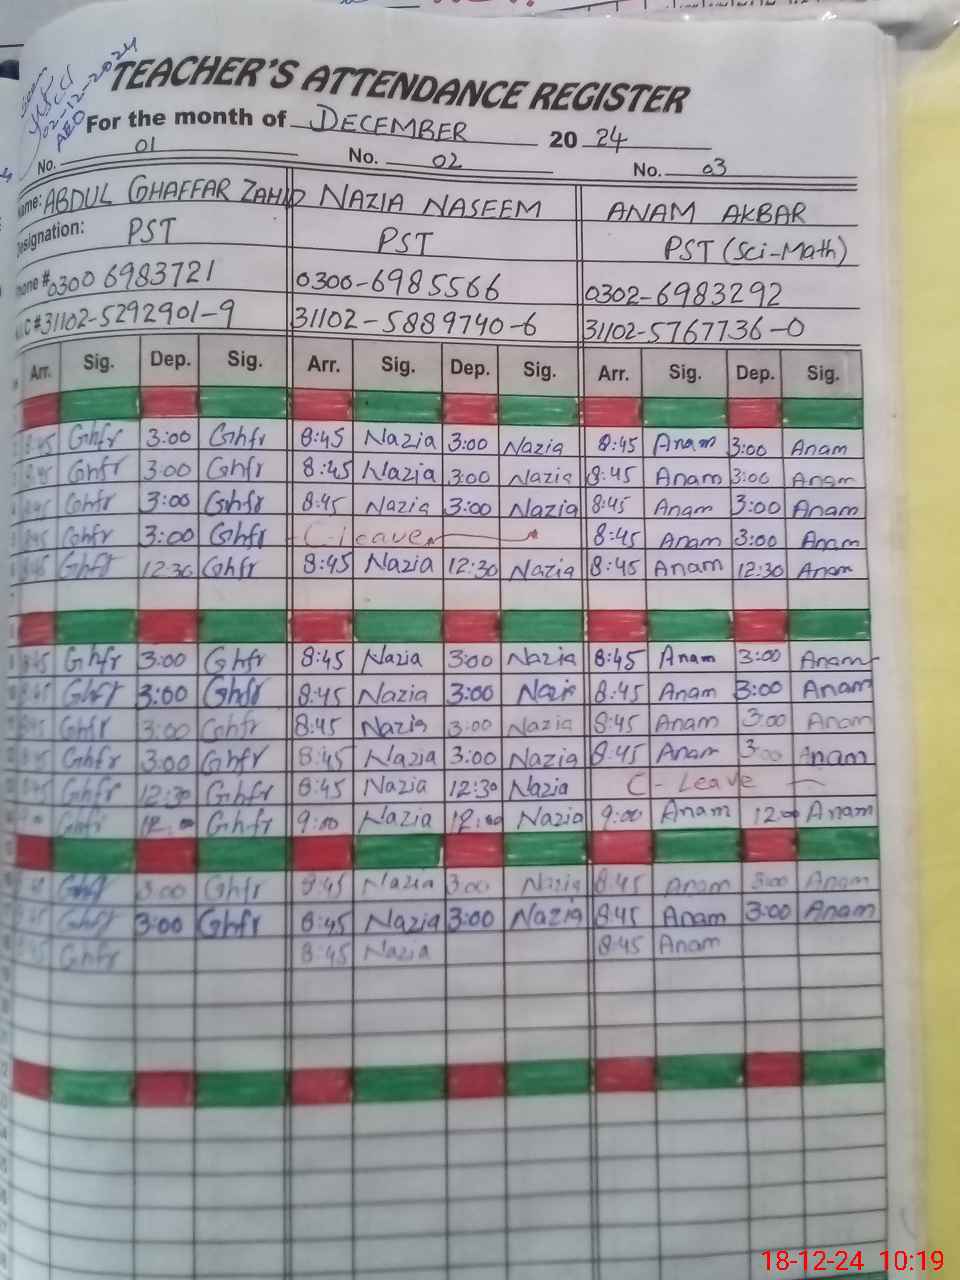 02-12-2024
AEO
TEACHER'S ATTENDANCE REGISTER
For the month of DECEMBER 20 24
No. 01 No. 02 No. 03
ame: ABDUL GHAFFAR ZAHID NAZIA NASEEM ANAM AKBAR
esignation: PST PST PST (Sci-Math)
one # 0300 6983721 0300-6985566 0302-6983292
C # 31102-5292901-9 31102-5889740-6 31102-5767736-0
Arr. Sig. Dep. Sig. Arr. Sig. Dep. Sig. Arr. Sig. Dep. Sig.
8:45 Ghfr 3:00 Ghfr 8:45 Nazia 3:00 Nazia 8:45 Anam 3:00 Anam
8:45 Ghfr 3:00 Ghfr 8:45 Nazia 3:00 Nazia 8:45 Anam 3:00 Anam
8:45 Ghfr 3:00 Ghfr 8:45 Nazia 3:00 Nazia 8:45 Anam 3:00 Anam
8:45 Ghfr 3:00 Ghfr C-leave 8:45 Anam 3:00 Anam
8:45 Ghfr 12:30 Ghfr 8:45 Nazia 12:30 Nazia 8:45 Anam 12:30 Anam
8:45 Ghfr 3:00 Ghfr 8:45 Nazia 3:00 Nazia 8:45 Anam 3:00 Anam
8:45 Ghfr 3:00 Ghfr 8:45 Nazia 3:00 Nazia 8:45 Anam 3:00 Anam
8:45 Ghfr 3:00 Ghfr 8:45 Nazia 3:00 Nazia 8:45 Anam 3:00 Anam
8:45 Ghfr 3:00 Ghfr 8:45 Nazia 3:00 Nazia 8:45 Anam 3:00 Anam
8:45 Ghfr 12:30 Ghfr 8:45 Nazia 12:30 Nazia C-Leave
Ghfr 12:00 Ghfr 9:00 Nazia 12:00 Nazia 9:00 Anam 12:00 Anam
Ghfr 3:00 Ghfr 8:45 Nazia 3:00 Nazia 8:45 Anam 3:00 Anam
8:45 Ghfr 3:00 Ghfr 8:45 Nazia 3:00 Nazia 8:45 Anam 3:00 Anam
8:45 Ghfr 8:45 Nazia 8:45 Anam
18-12-24 10:19